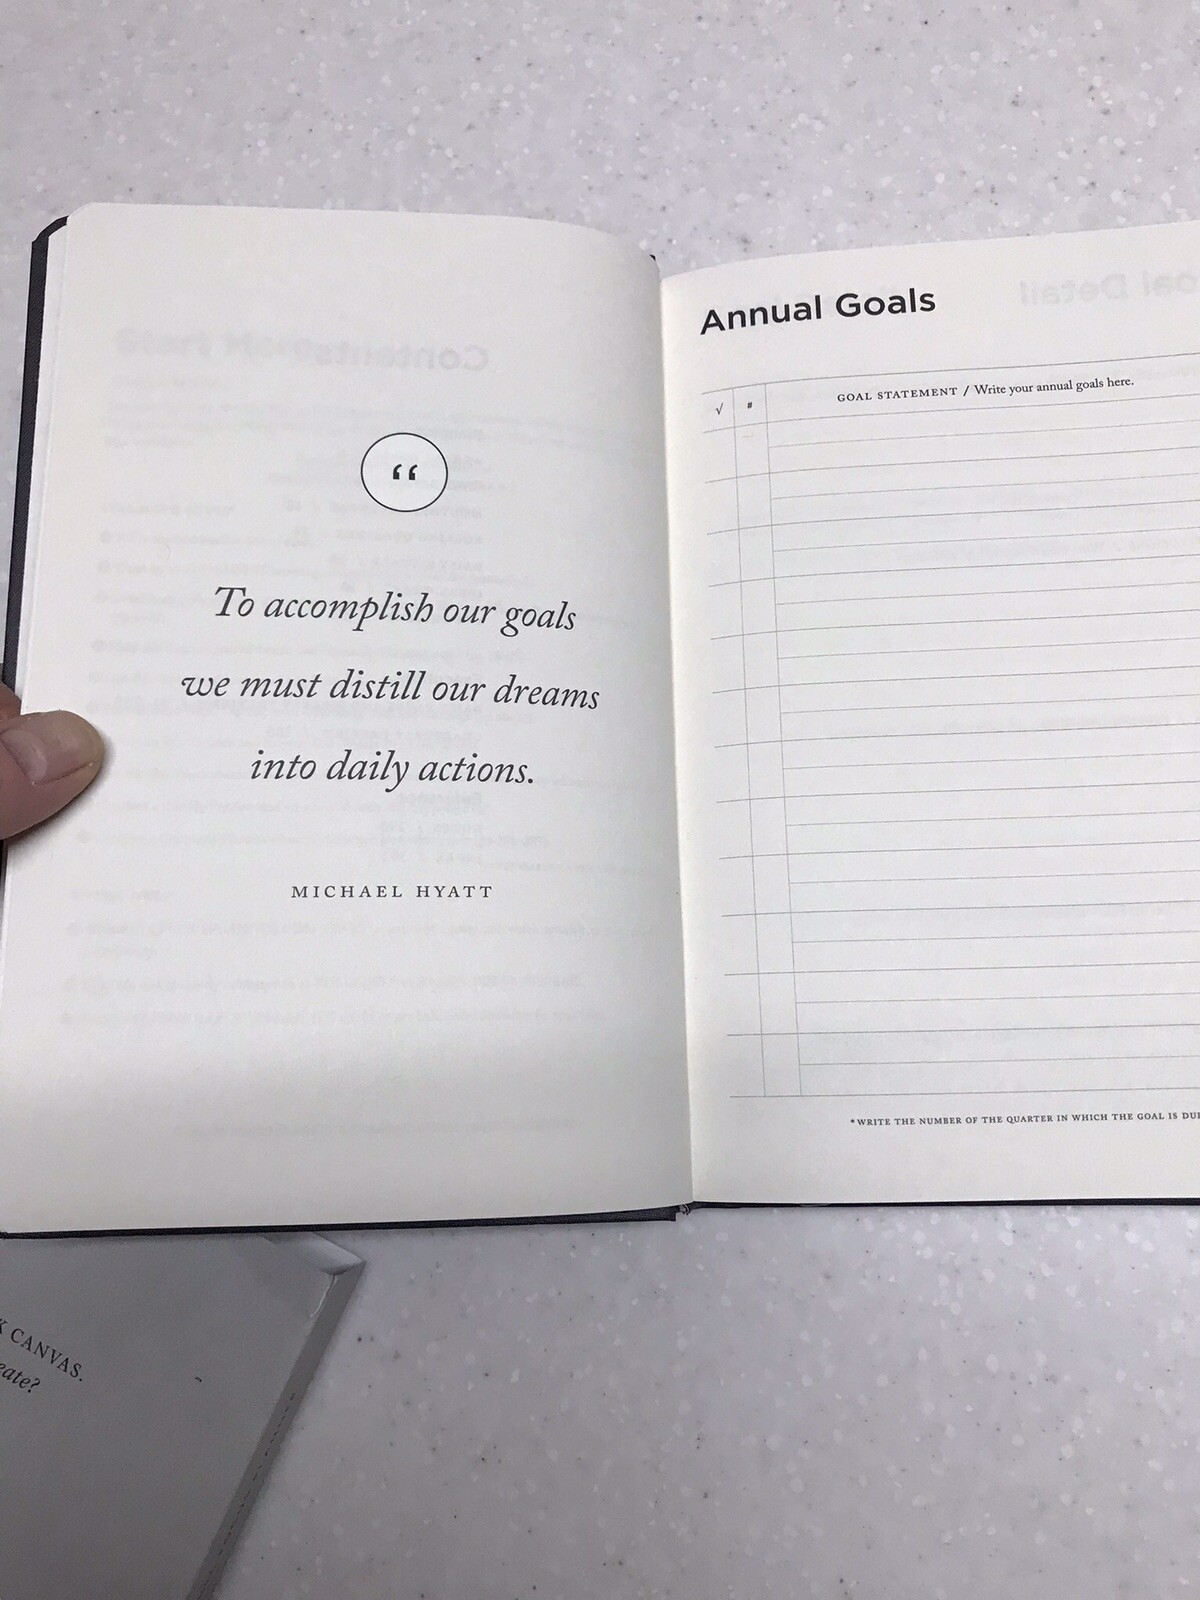 “
To accomplish our goals
we must distill our dreams
into daily actions.
MICHAEL HYATT
Annual Goals
√ # GOAL STATEMENT / Write your annual goals here.
* WRITE THE NUMBER OF THE QUARTER IN WHICH THE GOAL IS
CANVAS.